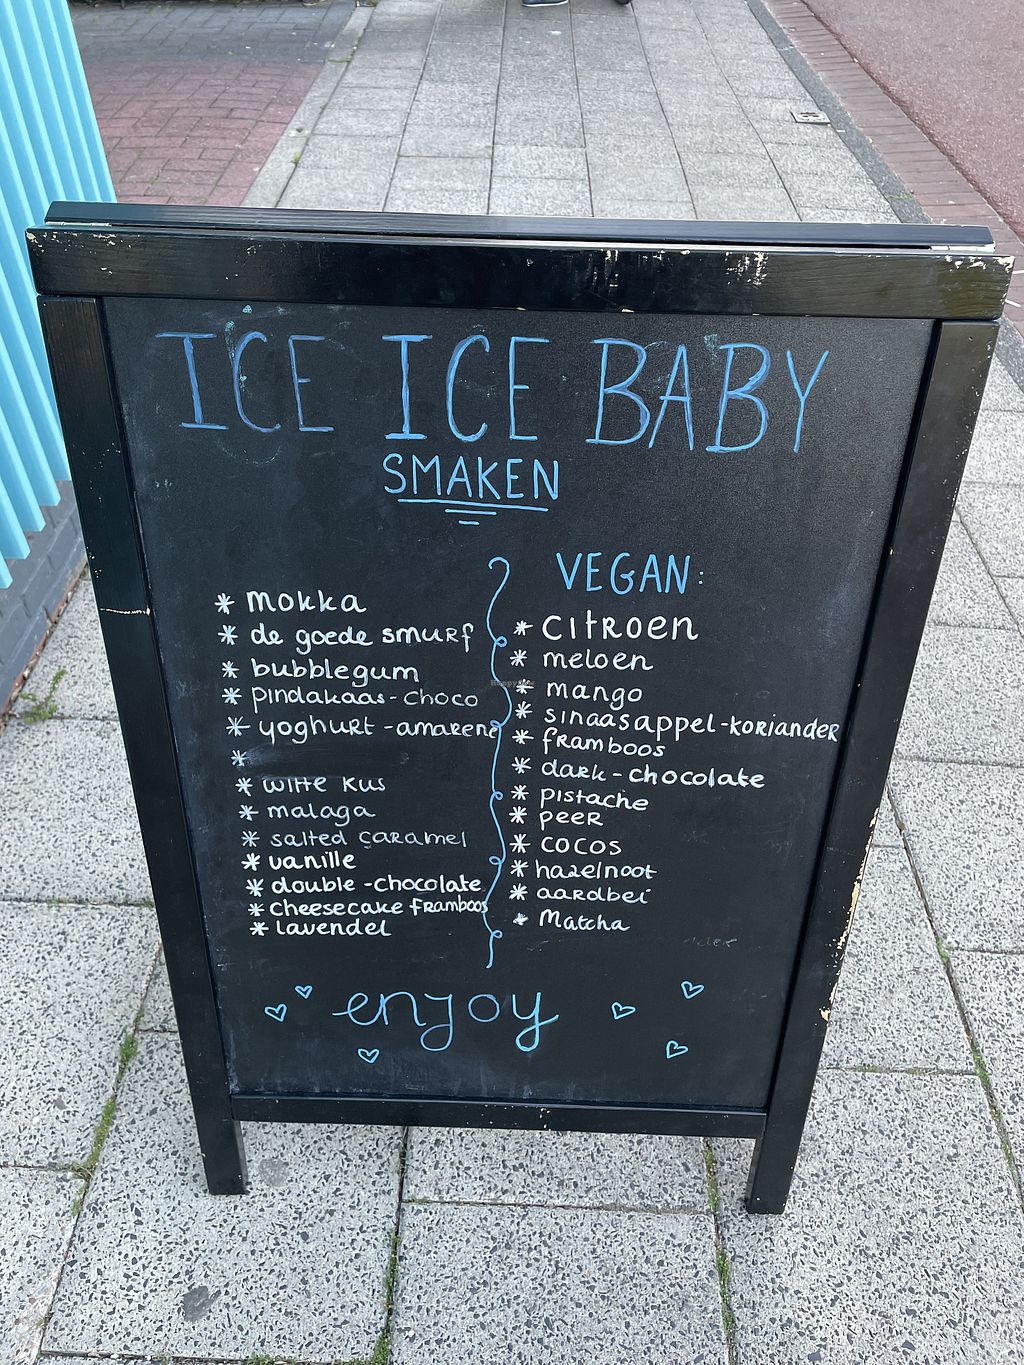 ICE ICE BABY
SMAKEN
* mokka
* de goede smurf
* bubblegum
* pindakaas-choco
* yoghurt-amarena
*
* witte kus
* malaga
* salted caramel
* vanille
* double-chocolate
* cheesecake framboos
* lavendel
VEGAN:
* citroen
* meloen
* mango
* sinaasappel-koriander
* framboos
* dark-chocolate
* pistache
* peer
* cocos
* hazelnoot
* aardbei
* Matcha
enjoy